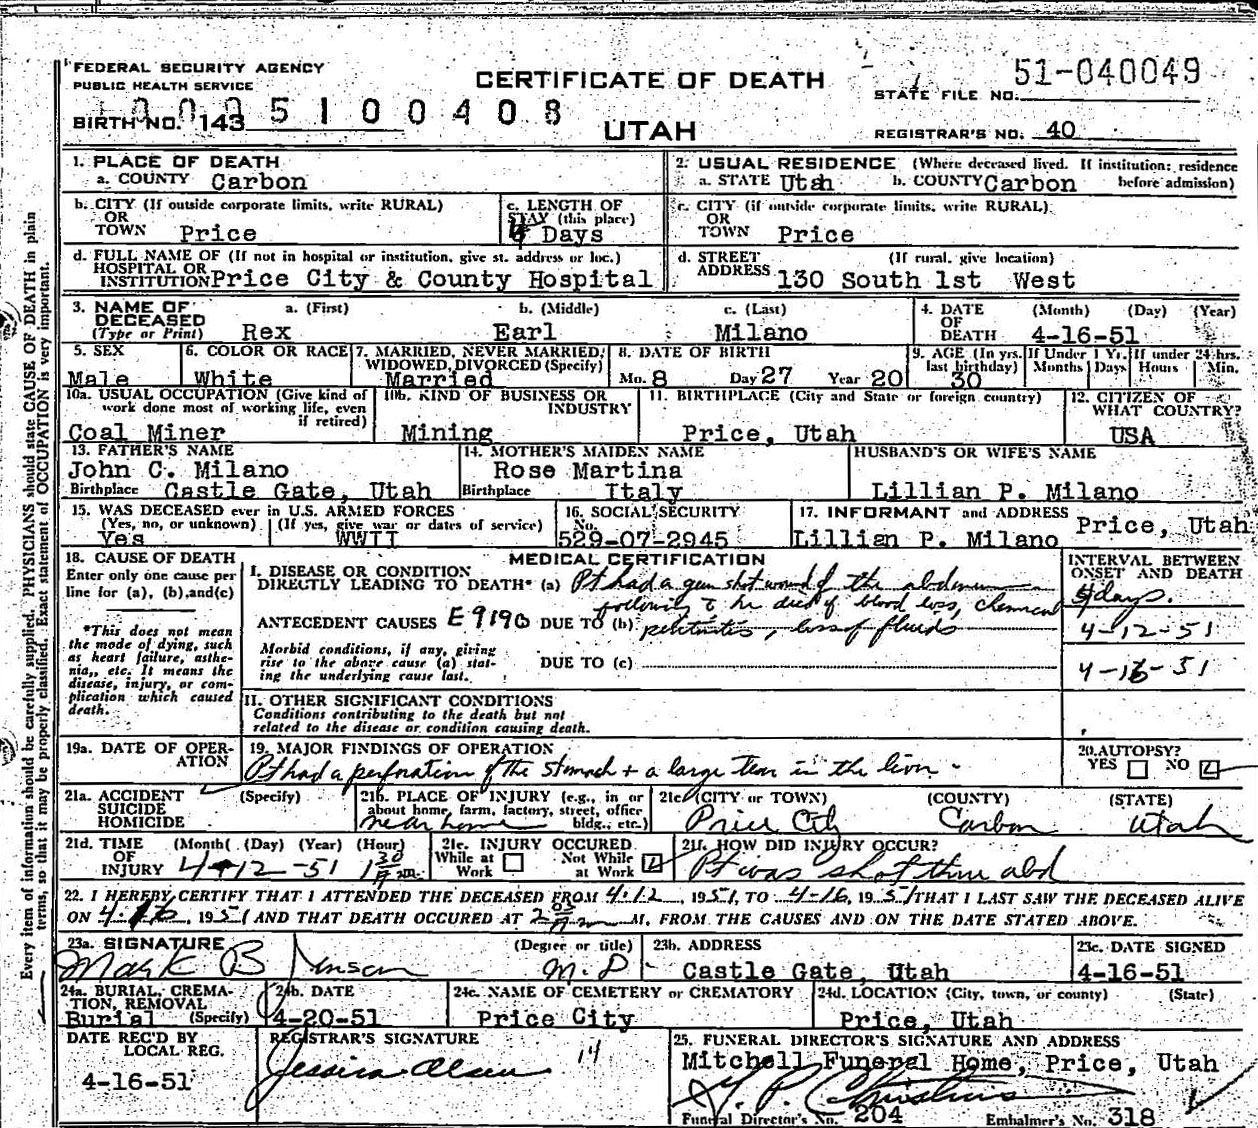 FEDERAL SECURITY AGENCY
PUBLIC HEALTH SERVICE
CERTIFICATE OF DEATH
STATE FILE NO. 51-040049
BIRTH NO. 143 0005100408
UTAH
REGISTRAR'S NO. 40
1. PLACE OF DEATH
a. COUNTY Carbon
2. USUAL RESIDENCE (Where deceased lived. If institution: residence before admission)
a. STATE Utah b. COUNTY Carbon
b. CITY (If outside corporate limits, write RURAL)
OR
TOWN Price
c. LENGTH OF
STAY (this place)
4 Days
c. CITY (if outside corporate limits, write RURAL)
OR
TOWN Price
d. FULL NAME OF (If not in hospital or institution, give st. address or loc.)
HOSPITAL OR
INSTITUTION Price City & County Hospital
d. STREET (If rural, give location)
ADDRESS 130 South 1st West
3. NAME OF DECEASED (Type or Print)
a. (First) b. (Middle) c. (Last)
Rex Earl Milano
4. DATE OF DEATH (Month) (Day) (Year)
4-16-51
5. SEX
Male
6. COLOR OR RACE
White
7. MARRIED, NEVER MARRIED, WIDOWED, DIVORCED (Specify)
Married
8. DATE OF BIRTH
Mo. 8 Day 27 Year 20
9. AGE (In yrs. last birthday)
30
If Under 1 Yr.
Months Days
If under 24 hrs.
Hours Min.
10a. USUAL OCCUPATION (Give kind of work done most of working life, even if retired)
Coal Miner
10b. KIND OF BUSINESS OR INDUSTRY
Mining
11. BIRTHPLACE (City and State or foreign country)
Price, Utah
12. CITIZEN OF WHAT COUNTRY?
USA
13. FATHER'S NAME
John C. Milano
Birthplace Castle Gate, Utah
14. MOTHER'S MAIDEN NAME
Rose Martina
Birthplace Italy
HUSBAND'S OR WIFE'S NAME
Lillian P. Milano
15. WAS DECEASED ever in U.S. ARMED FORCES
(Yes, no, or unknown) (If yes, give war or dates of service)
Yes WWII
16. SOCIAL SECURITY No.
529-07-2945
17. INFORMANT and ADDRESS
Lillian P. Milano Price, Utah
18. CAUSE OF DEATH
Enter only one cause per
line for (a), (b), and (c)
*This does not mean
the mode of dying, such
as heart failure, asthe-
nia, etc. It means the
disease, injury, or com-
plication which caused
death.
MEDICAL CERTIFICATION
I. DISEASE OR CONDITION
DIRECTLY LEADING TO DEATH* (a) Pt had a gun shot wound of the abdomen
following to he died of blood loss, chemical
ANTECEDENT CAUSES E919B DUE TO (b) peritonitis, loss of fluids
Morbid conditions, if any, giving
rise to the above cause (a) stat-
ing the underlying cause last.
DUE TO (c)
INTERVAL BETWEEN
ONSET AND DEATH
4 days.
4-12-51
4-16-51
II. OTHER SIGNIFICANT CONDITIONS
Conditions contributing to the death but not
related to the disease or condition causing death.
19a. DATE OF OPER-
ATION
19. MAJOR FINDINGS OF OPERATION
Pt had a perforation of the stomach + a large tear in the liver.
20. AUTOPSY?
YES NO
21a. ACCIDENT (Specify)
SUICIDE
HOMICIDE
21b. PLACE OF INJURY (e.g., in or
about home, farm, factory, street, office
bldg., etc.)
near home
21c (CITY or TOWN) (COUNTY) (STATE)
Price City Carbon Utah
21d. TIME OF INJURY (Month) (Day) (Year) (Hour)
4-12-51 1 30
21e. INJURY OCCURED
While at Work Not While at Work
21f. HOW DID INJURY OCCUR?
Pt was shot thru abd
22. I HEREBY CERTIFY THAT I ATTENDED THE DECEASED FROM 4-12, 1951, TO 4-16, 1951 THAT I LAST SAW THE DECEASED ALIVE
ON 4-16, 1951 AND THAT DEATH OCCURED AT M, FROM THE CAUSES AND ON THE DATE STATED ABOVE.
23a. SIGNATURE (Degree or title)
Mark B Jenson M.D.
23b. ADDRESS
Castle Gate, Utah
23c. DATE SIGNED
4-16-51
24a. BURIAL, CREMA-
TION, REMOVAL
Burial (Specify)
24b. DATE
4-20-51
24c. NAME OF CEMETERY or CREMATORY
Price City
24d. LOCATION (City, town, or county) (State)
Price, Utah
DATE REC'D BY
LOCAL REG.
4-16-51
REGISTRAR'S SIGNATURE
14
Jessica Olsen
25. FUNERAL DIRECTOR'S SIGNATURE AND ADDRESS
Mitchell Funeral Home, Price, Utah
Funeral Director's No. 204 Embalmer's No. 318
Every item of information should be carefully supplied. PHYSICIANS should state CAUSE OF DEATH in plain
terms, so that it may be properly classified. Exact statement of OCCUPATION is very important.